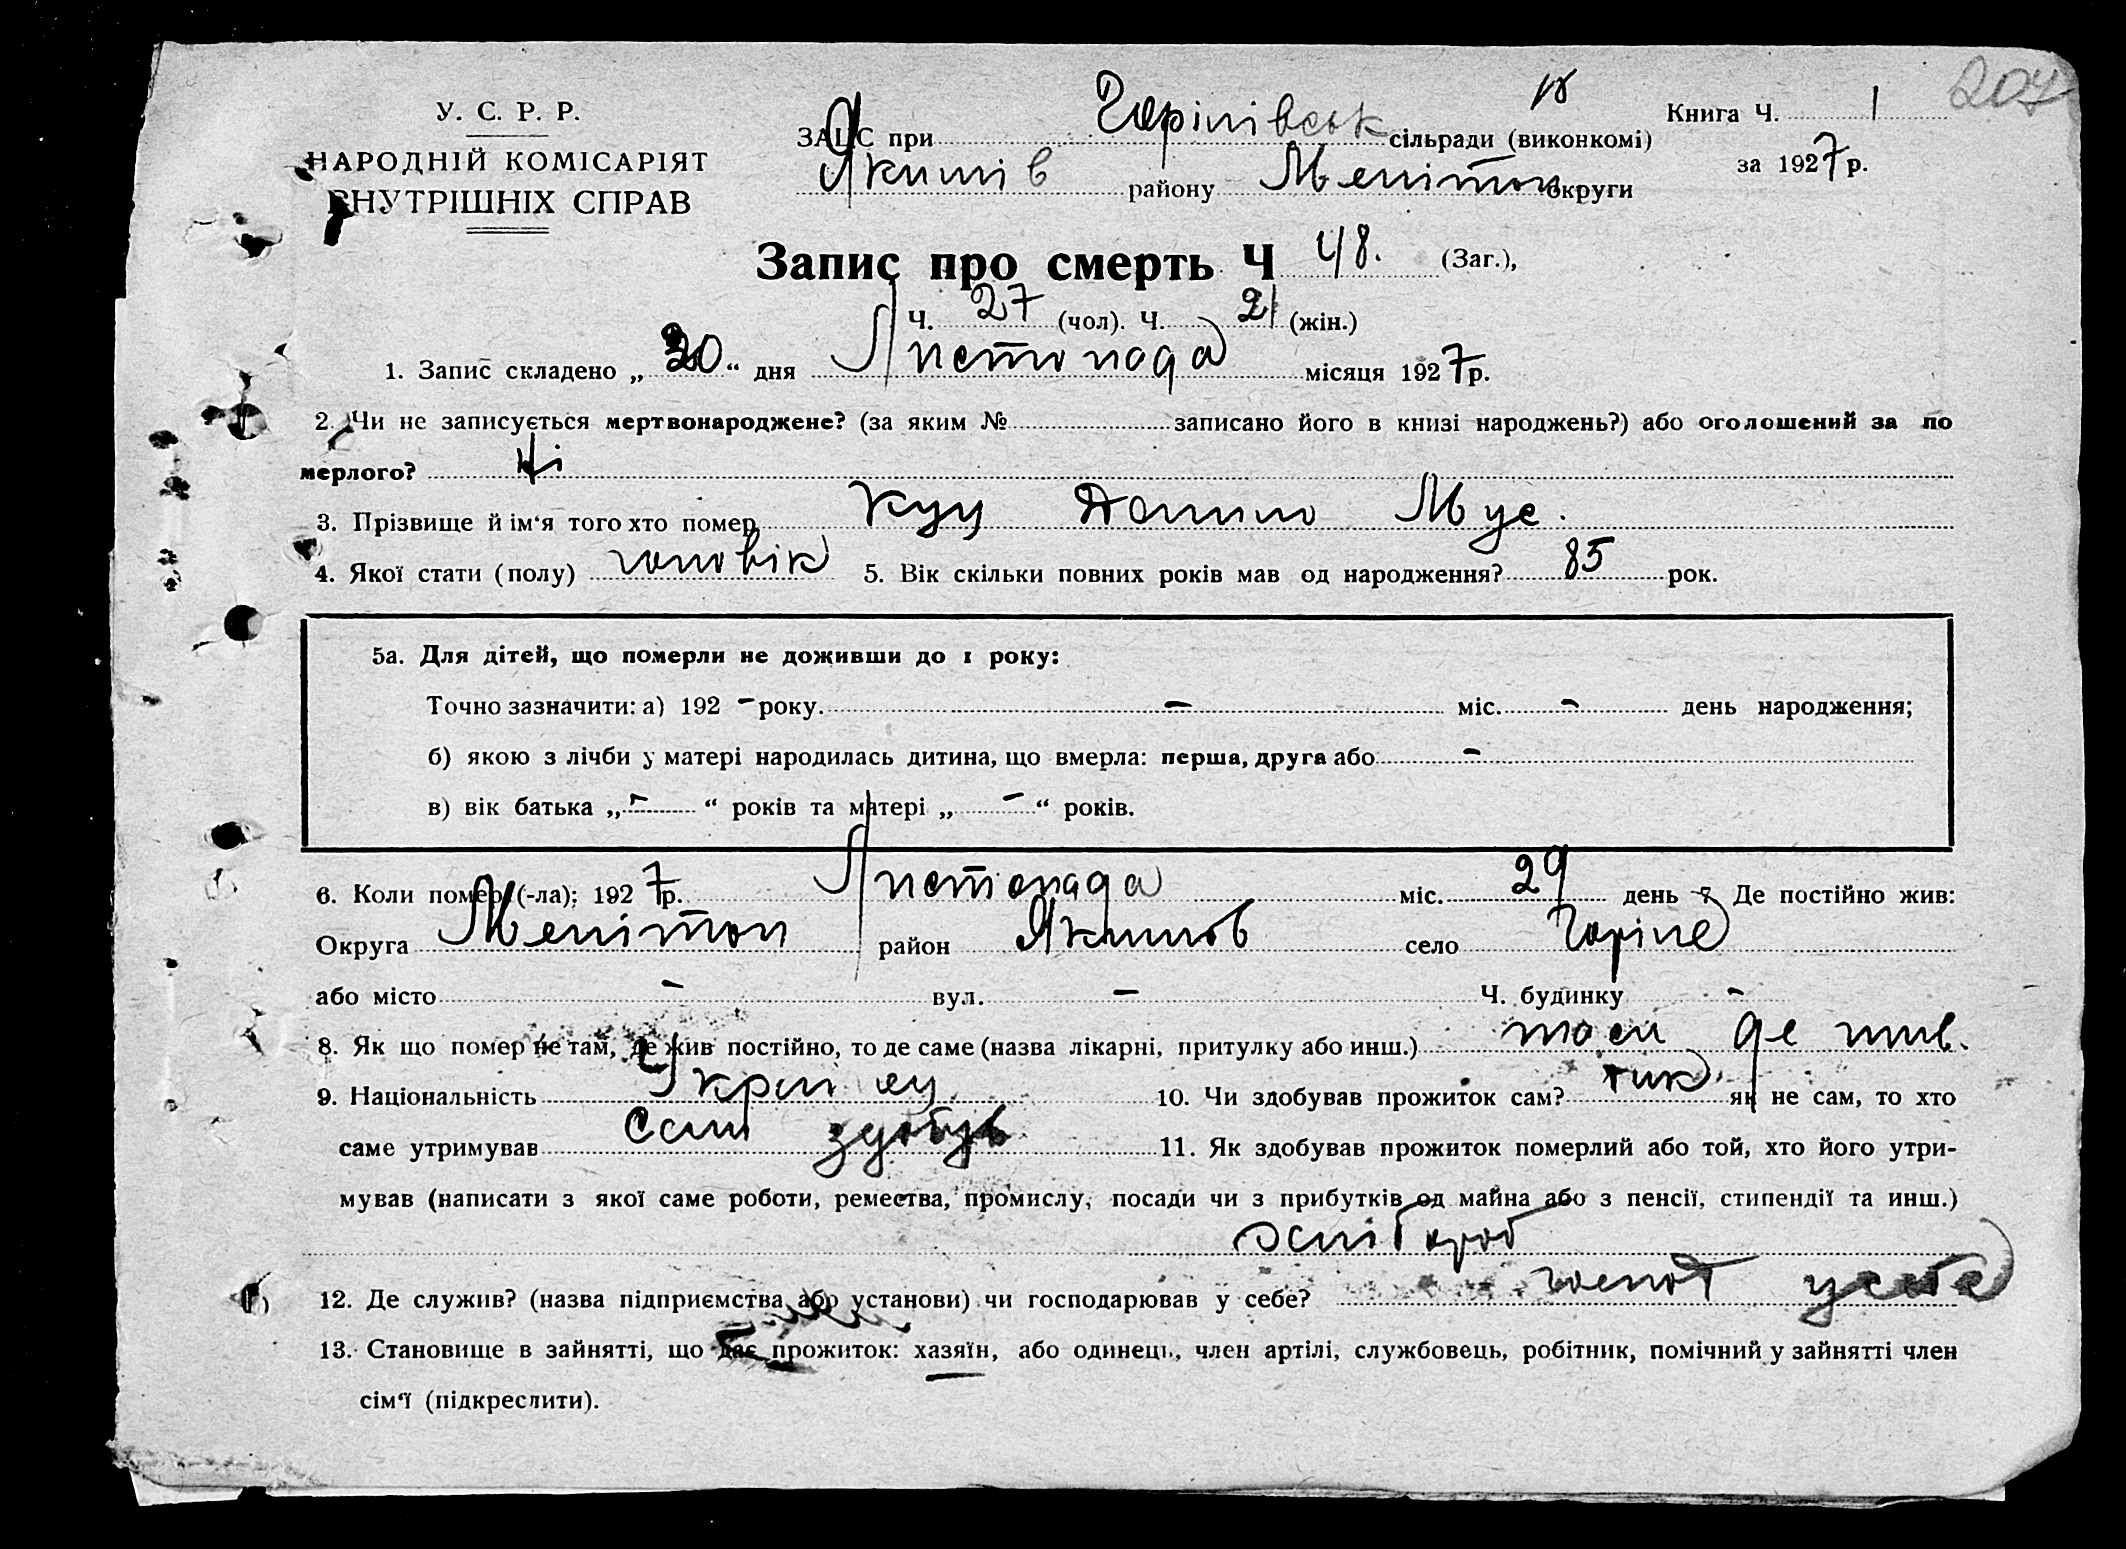 207
У. С. Р. Р.
НАРОДНІЙ КОМІСАРІЯТ
ВНУТРІШНІХ СПРАВ
ЗАЦС при Горілівськ сільради (виконкомі)
Якимів району Меліт округи
Книга Ч. 1
за 1927 р.
Запис про смерть Ч 48. (Заг.),
Ч. 27 (чол). Ч. 21 (жін.)
1. Запис складено „30“ дня Листопада місяця 1927 р.
2. Чи не записується мертвонароджене? (за яким № записано його в книзі народжень?) або оголошений за по
мерлого? Ні
3. Прізвище й ім‘я того хто помер Куц Данило Мус.
4. Якої стати (полу) чоловік 5. Вік скільки повних років мав од народження? 85 рок.
5а. Для дітей, що померли не доживши до 1 року:
Точно зазначити: а) 192 – року. – міс. – день народження;
б) якою з лічби у матері народилась дитина, що вмерла: перша, друга або –
в) вік батька „ – “ років та матері „ – “ років.
6. Коли помер (-ла); 1927 р. Листопада міс. 29 день 7. Де постійно жив:
Округа Мелітоп район Якимов село Горіле
або місто – вул. – Ч. будинку –
8. Як що помер не там, де жив постійно, то де саме (назва лікарні, притулку або инш.) там де жив.
9. Національність Украінец 10. Чи здобував прожиток сам? так як не сам, то хто
саме утримував Сам здобув 11. Як здобував прожиток померлий або той, хто його утри-
мував (написати з якої саме роботи, ремества, промислу, посади чи з прибутків од майна або з пенсії, стипендії та инш.)
хлібороб
12. Де служив? (назва підприємства або установи) чи господарював у себе? господ у себе
13. Становище в зайнятті, що дає прожиток: хазяїн, або одинець, член артілі, службовець, робітник, помічний у зайнятті член
сім‘ї (підкреслити).